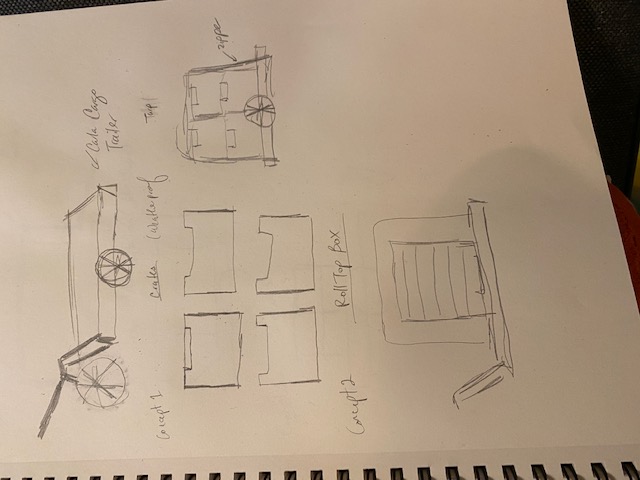 Carla Cargo
Trailer
Concept 1
Crates (Weatherproof
Tarp
zipper
Concept 2
Roll Top Box